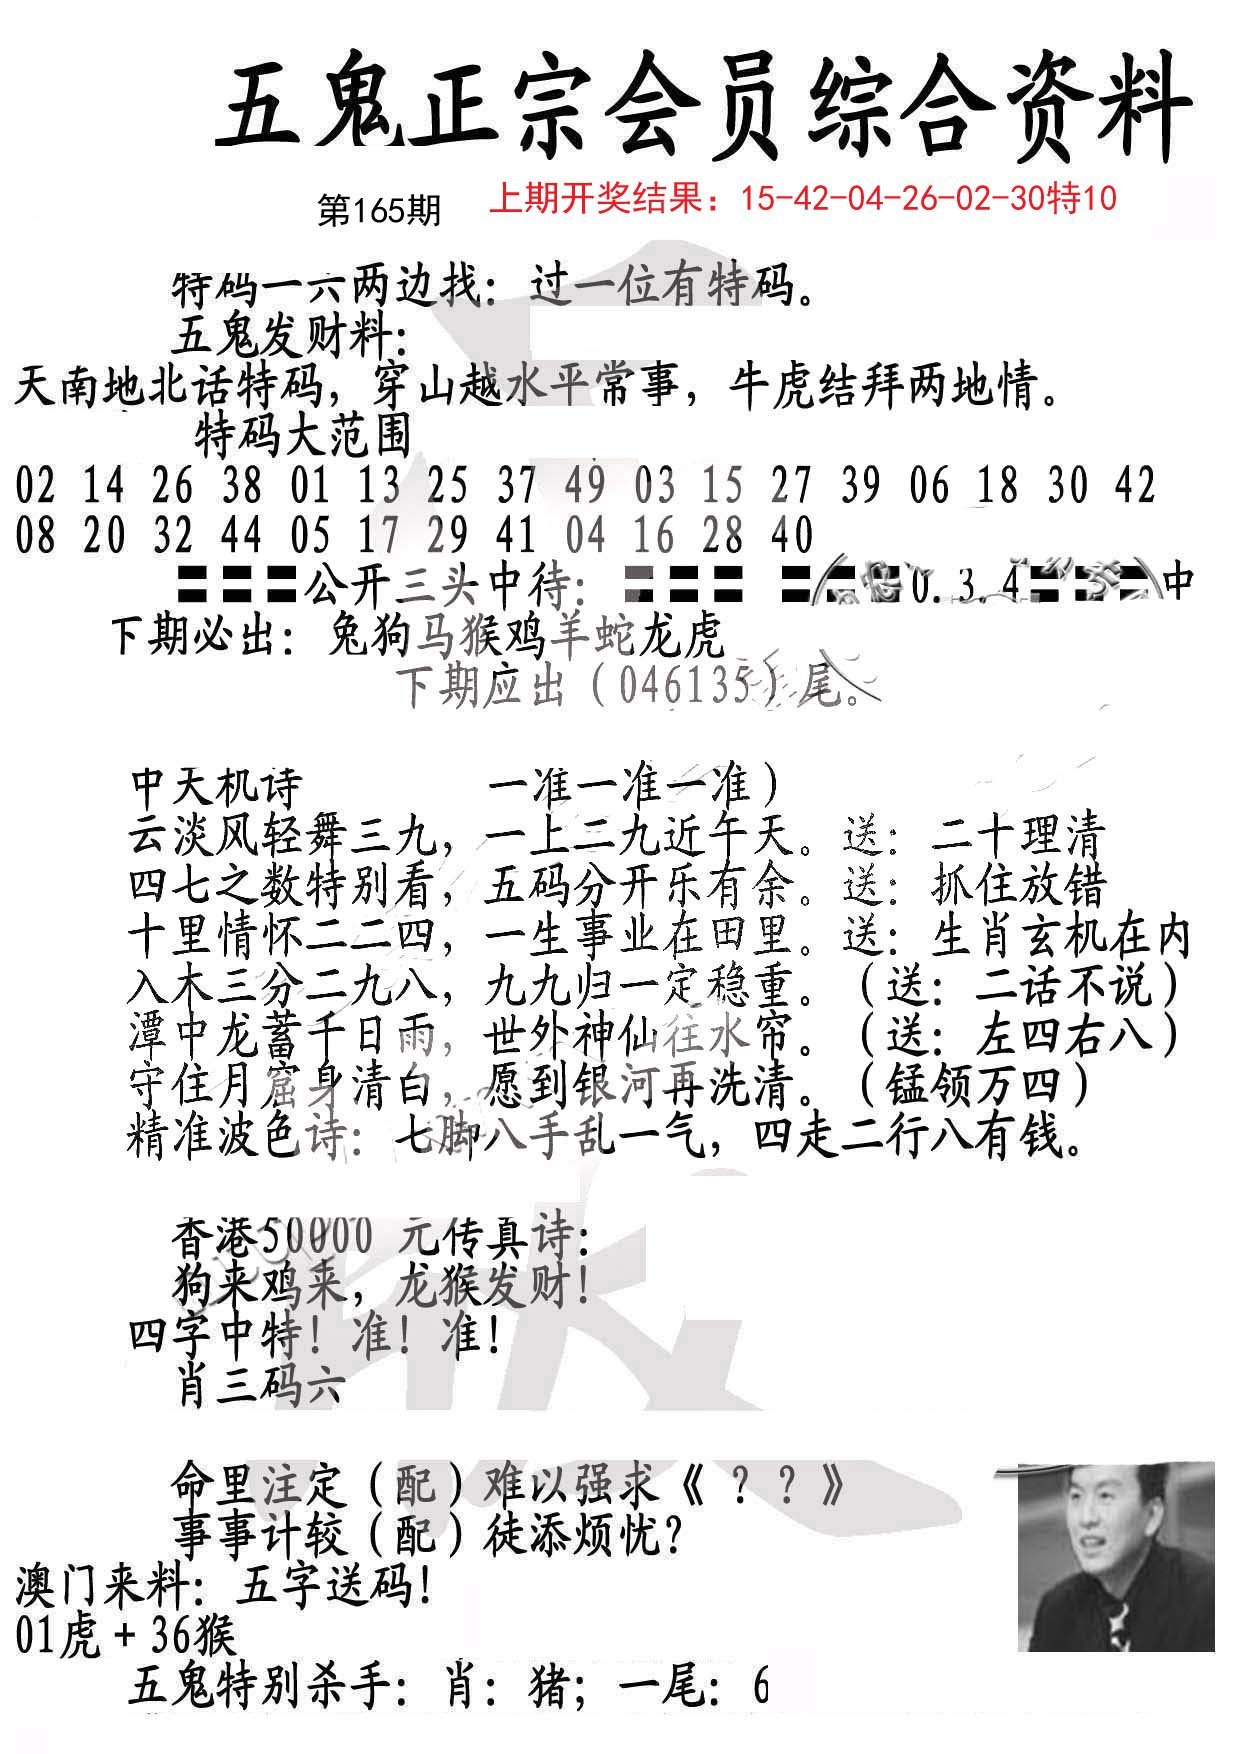 五鬼正宗会员综合资料
第165期 上期开奖结果：15-42-04-26-02-30特10
特码一六两边找：过一位有特码。
五鬼发财料：
天南地北话特码，穿山越水平常事，牛虎结拜两地情。
特码大范围
02 14 26 38 01 13 25 37 49 03 15 27 39 06 18 30 42
08 20 32 44 05 17 29 41 04 16 28 40
公开三头中待： 0.3.4 中
下期必出：兔狗马猴鸡羊蛇龙虎
下期应出（046135）尾。
中天机诗 一准一准一准）
云淡风轻舞三九，一上二九近午天。送：二十理清
四七之数特别看，五码分开乐有余。送：抓住放错
十里情怀二二四，一生事业在田里。送：生肖玄机在内
入木三分二九八，九九归一定稳重。（送：二话不说）
潭中龙蓄千日雨，世外神仙往水帘。（送：左四右八）
守住月窟身清白，愿到银河再洗清。（锰领万四）
精准波色诗：七脚八手乱一气，四走二行八有钱。
香港50000 元传真诗：
狗来鸡来，龙猴发财！
四字中特！准！准！
肖三码六
命里注定（配）难以强求《 ？？》
事事计较（配）徒添烦忧？
澳门来料：五字送码！
01虎+36猴
五鬼特别杀手：肖：猪；一尾：6